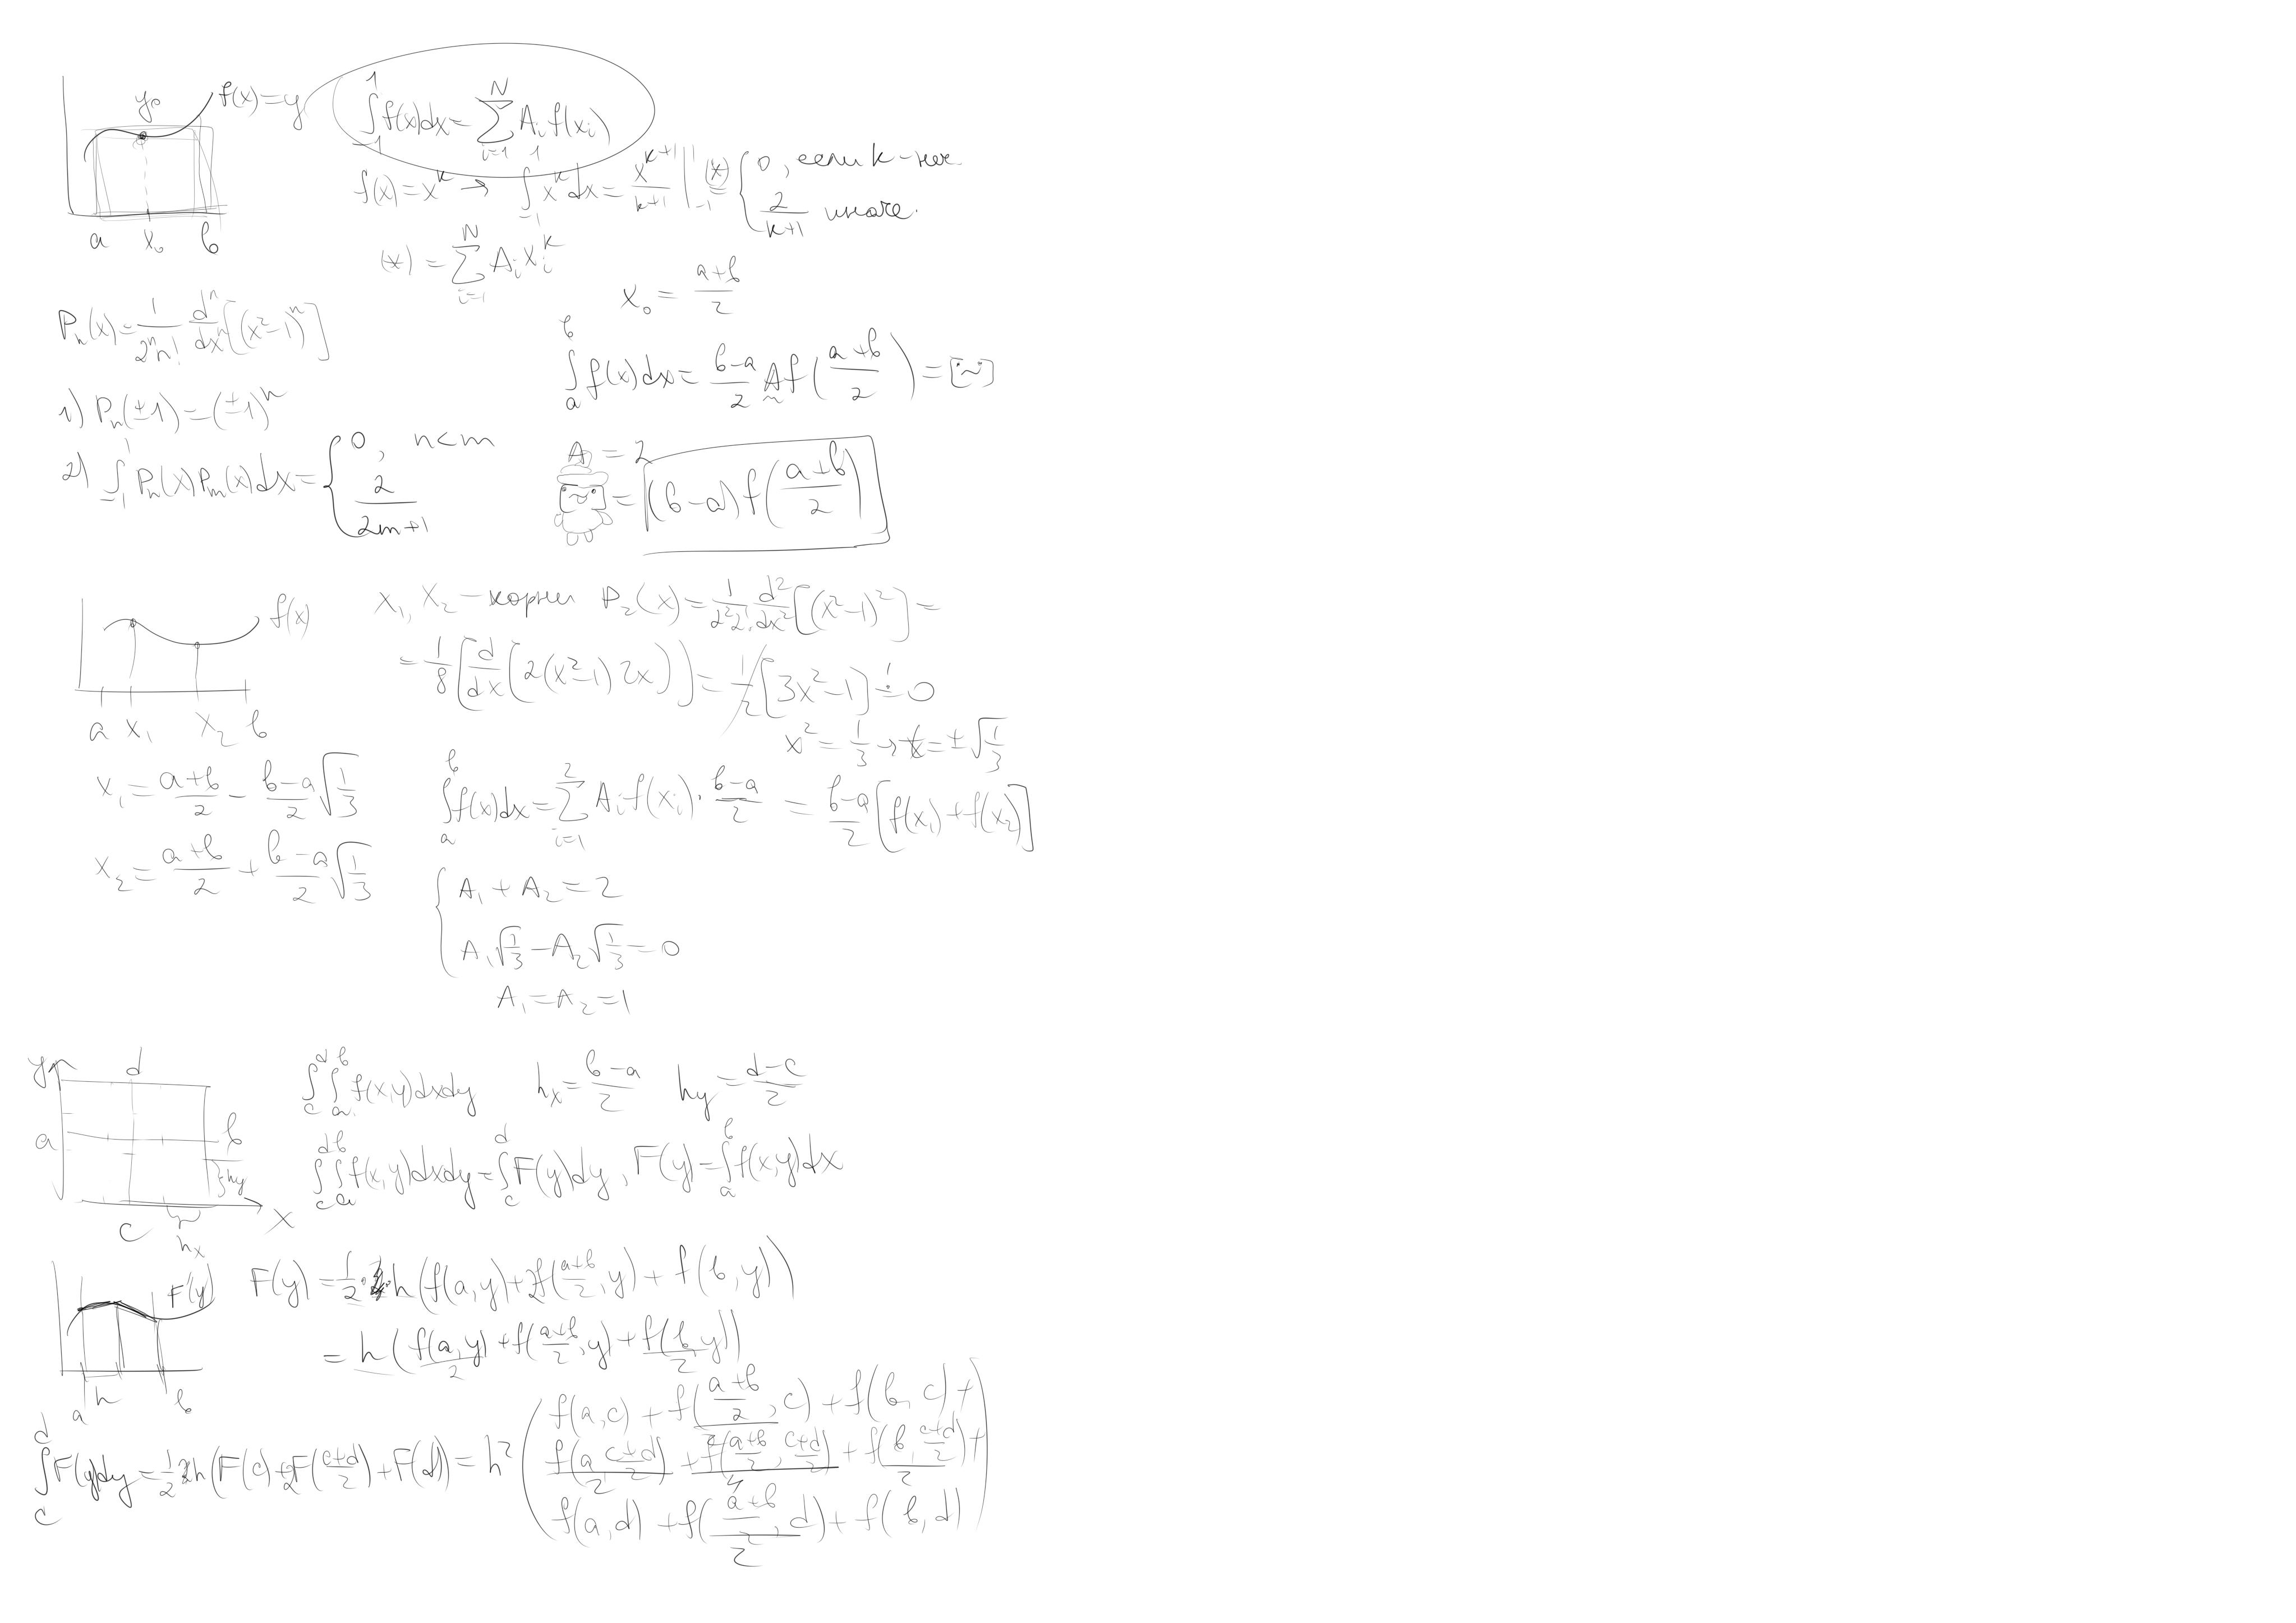 f(x)=y
y₀
a x₀ b
∫₋₁¹ f(x)dx = ∑ᵢ₌₁ᴺ Aᵢ f(xᵢ)
f(x)=xᵏ → ∫₋₁¹ xᵏ dx = xᵏ⁺¹/(k+1) |₋₁¹ (*)= { 0, если k-неч.
2/(k+1) иначе.
(*) = ∑ᵢ₌₁ᴺ Aᵢ xᵢᵏ
x₀ = (a+b)/2
Pₙ(x) = 1/(2ⁿn!) dⁿ/dxⁿ [(x²-1)ⁿ]
∫ₐᵇ f(x)dx = (b-a)/2 A f((a+b)/2) =
1) Pₙ(±1) = (±1)ⁿ
2) ∫₋₁¹ Pₙ(x)Pₘ(x)dx = { 0, n<m
2/(2m+1)
A = 2
= (b-a) f((a+b)/2)
f(x)
a x₁ x₂ b
x₁, x₂ - корни P₂(x) = 1/(2²2!) d²/dx² [(x²-1)²] =
= 1/8 [d/dx (2(x²-1)2x)] = 1/2 [3x²-1] = 0
x² = 1/3 → x = ±√(1/3)
x₁ = (a+b)/2 - (b-a)/2 √(1/3)
x₂ = (a+b)/2 + (b-a)/2 √(1/3)
∫ₐᵇ f(x)dx = ∑ᵢ₌₁² Aᵢ f(xᵢ) · (b-a)/2 = (b-a)/2 [f(x₁)+f(x₂)]
{ A₁ + A₂ = 2
A₁√(1/3) - A₂√(1/3) = 0
A₁ = A₂ = 1
y d
a b
hy
c x
hₓ
∫_c^d ∫ₐᵇ f(x,y)dxdy hₓ = (b-a)/2 hy = (d-c)/2
∫_c^d ∫ₐᵇ f(x,y)dxdy = ∫_c^d F(y)dy, F(y) = ∫ₐᵇ f(x,y)dx
F(y)
a h b
F(y) = 1/2 · h (f(a,y) + 2f((a+b)/2, y) + f(b,y))
= h (f(a,y)/2 + f((a+b)/2, y) + f(b,y)/2)
∫_c^d F(y)dy = 1/2 h (F(c) + 2F((c+d)/2) + F(d)) = h² ( f(a,c) + f((a+b)/2, c)/2 + f(b,c) +
f(a, (c+d)/2)/2 + f((a+b)/2, (c+d)/2)/4 + f(b, (c+d)/2)/2 +
f(a,d) + f((a+b)/2, d)/2 + f(b,d) )